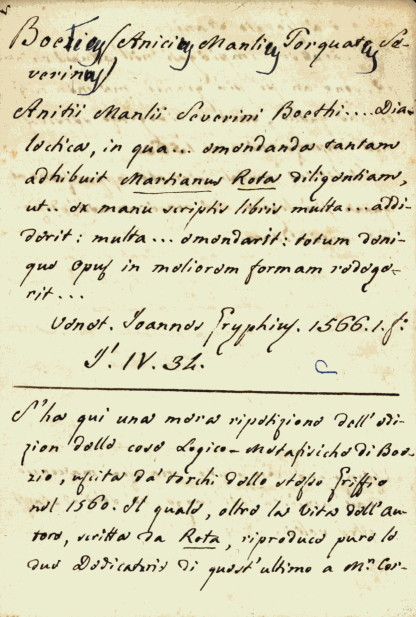 Boetius (Anicius Manlius Torquatus Se-
verinus)
Anitii Manlii Severini Boethi.... Dia-
lectica, in qua... emendanda tantam
adhibuit Martianus Rota diligentiam,
ut.. ex manu scriptis libris multa... addi-
derit: multa... emendarit: totum deni-
que opus in meliorem formam redege-
rit...
Venet. Joannes Gryphius. 1566. 1. f.º
J'. IV. 34.
S'ha qui una mera ripetizione dell'edi-
zion delle cose Logico-Metafisiche di Boe-
zio, uscita da' torchi dello stesso Griffio
nel 1560. Il quale, oltre la Vita dell'Au-
tore, scritta da Rota, riproduce pure le
due Dedicatorie di quest'ultimo a M.r Cor-